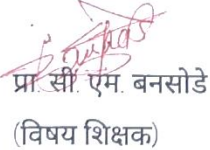 प्रा. सी. एम. बनसोडे
(विषय शिक्षक)